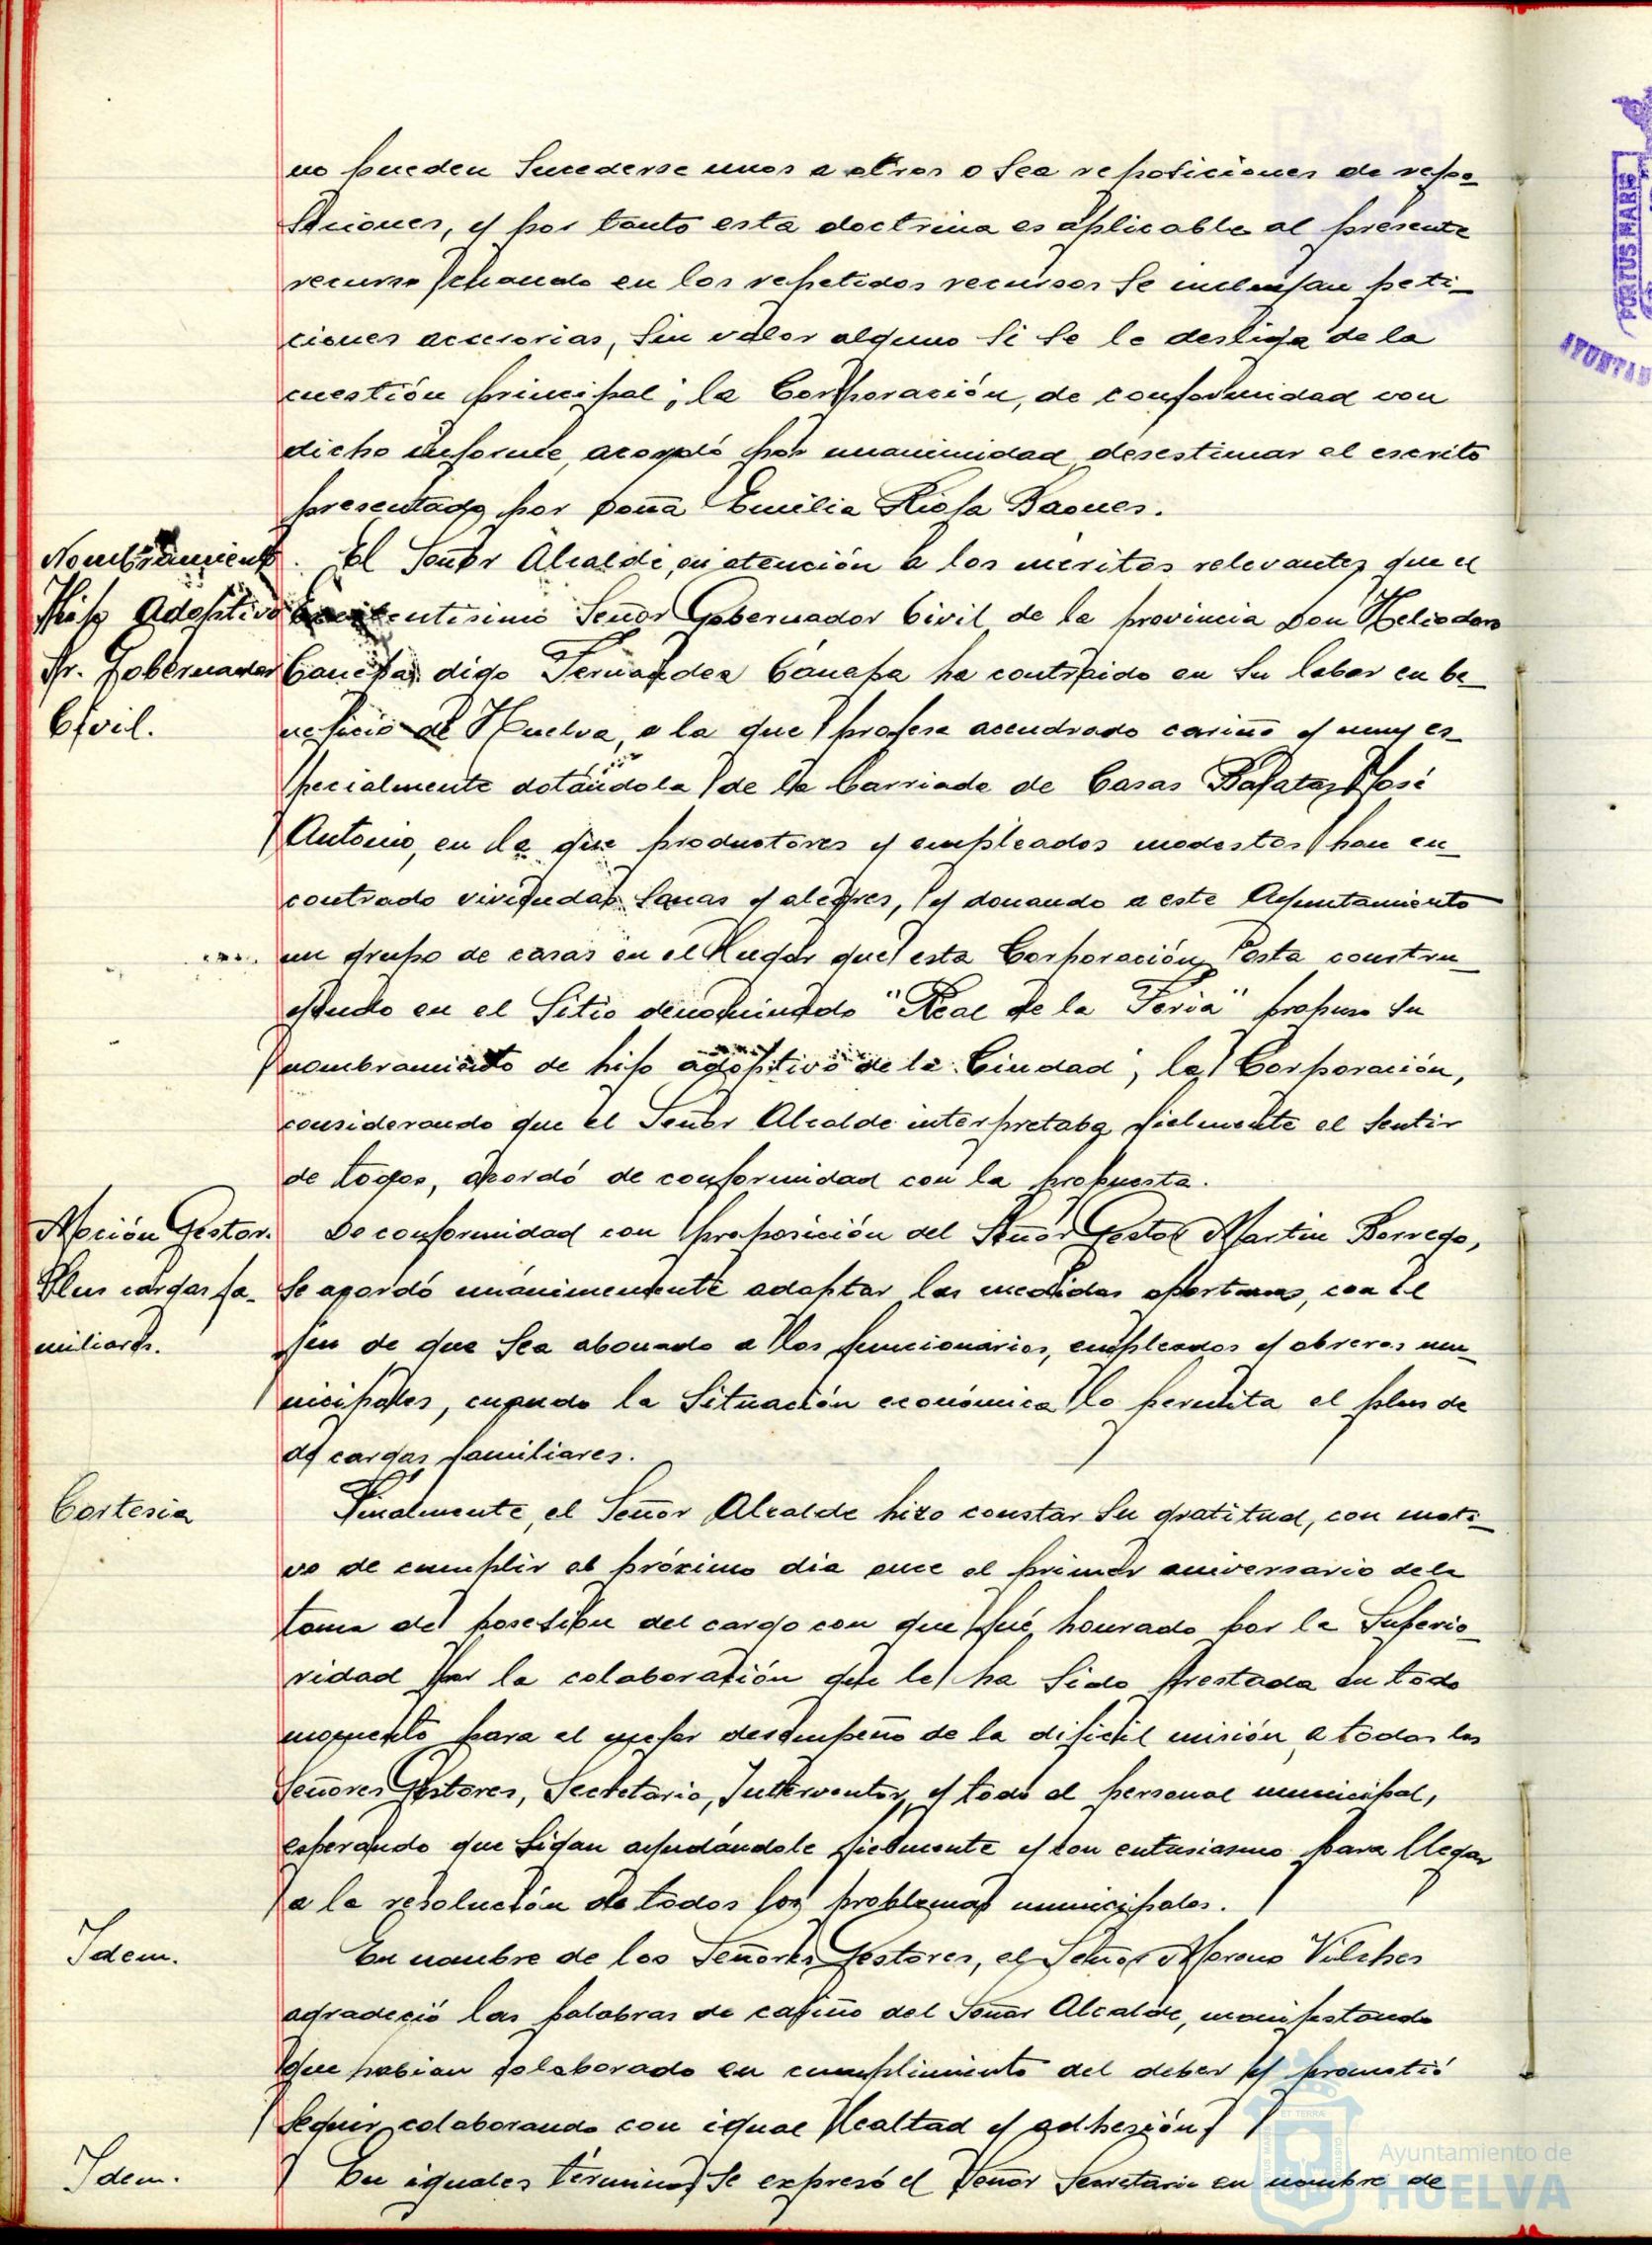 no pueden sucederse unos a otros o sea reposiciones de repo-
siciones, y por tanto esta doctrina es aplicable al presente
recurso cuando en los repetidos recursos se incluyan peti-
ciones accesorias, sin valor alguno si se le desliga de la
cuestión principal; la Corporación, de conformidad con
dicho informe, acordó por unanimidad desestimar el escrito
presentado por Doña Emilia Baques.
Nombramiento
Hijo Adoptivo
Sr. Gobernador
Civil.
El Señor Alcalde, en atención a los méritos relevantes que el
Excelentísimo Señor Gobernador Civil de la provincia Don Heliodoro
Canepa, digo Fernandez Cánepa ha contraido en su labor en be-
neficio de Huelva, a la que profesa acendrado cariño y muy es-
pecialmente dotándola de la barriada de Casas Baratas José
Antonio, en la que productores y empleados modestos han en-
contrado viviendas sanas y alegres, y donando a este Ayuntamiento
un grupo de casas en el lugar que esta Corporación esta constru-
yendo en el sitio denominado "Real de la Feria" propuso su
nombramiento de hijo adoptivo de la Ciudad; la Corporación,
considerando que el Señor Alcalde interpretaba fielmente el sentir
de todos, acordó de conformidad con la propuesta.
Moción Gestor.
Plus cargas fa-
miliares.
De conformidad con proposición del Señor Gestor Martin Borrego,
se acordó unánimemente adoptar las medidas oportunas, con el
fin de que sea abonado a los funcionarios, empleados y obreros mu-
nicipales, cuando la situación económica lo permita el plus de
de cargas familiares.
Cortesia
Finalmente, el Señor Alcalde hizo constar su gratitud, con moti-
vo de cumplir el próximo dia once el primer aniversario de la
toma de posesión del cargo con que fué honrado por la Superio-
ridad por la colaboración que le ha sido prestada en todo
momento para el mejor desempeño de la dificil misión, a todos los
Señores Gestores, Secretario, Interventor, y todo el personal municipal,
esperando que sigan ayudándole fielmente y con entusiasmo para llegar
a la resolución de todos los problemas municipales.
Idem.
En nombre de los Señores Gestores, el Señor Moreno Vilches
agradeció las palabras de cariño del Señor Alcalde, manifestando
que habian colaborado en cumplimiento del deber y prometió
seguir colaborando con igual lealtad y adhesión.
Idem.
En iguales términos se expresó el Señor Secretario en nombre de
PORTUS MARIS
AYUNTAM
Ayuntamiento de
HUELVA